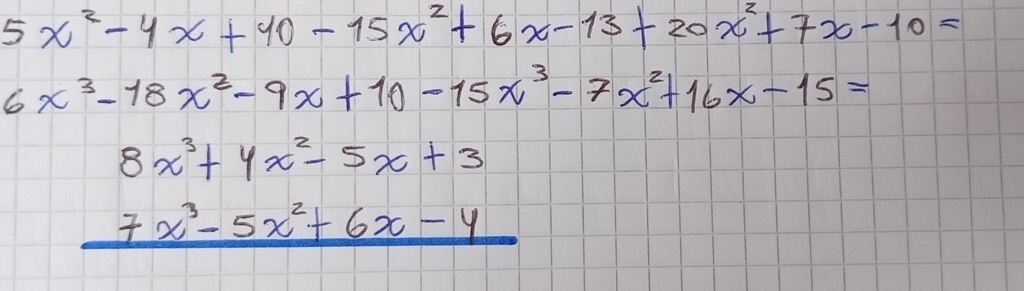 5x² - 4x + 40 - 15x² + 6x - 13 + 20x² + 7x - 10 =
6x³ - 18x² - 9x + 10 - 15x³ - 7x² + 16x - 15 =
8x³ + 4x² - 5x + 3
7x³ - 5x² + 6x - 4